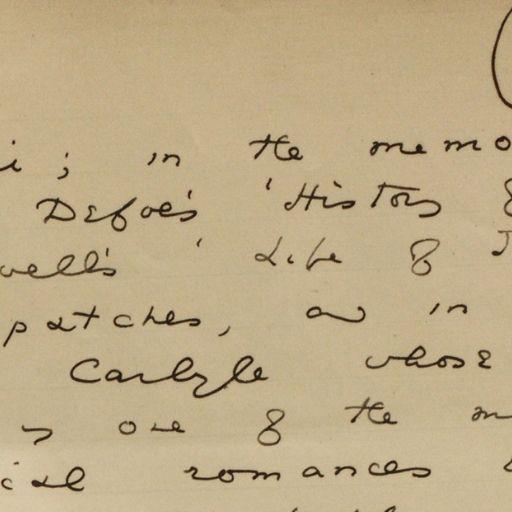 i; in the memo
Defoe's 'History of
well's 'Life of J
patches, or in
Carlyle whose
is one of the m
ical romances